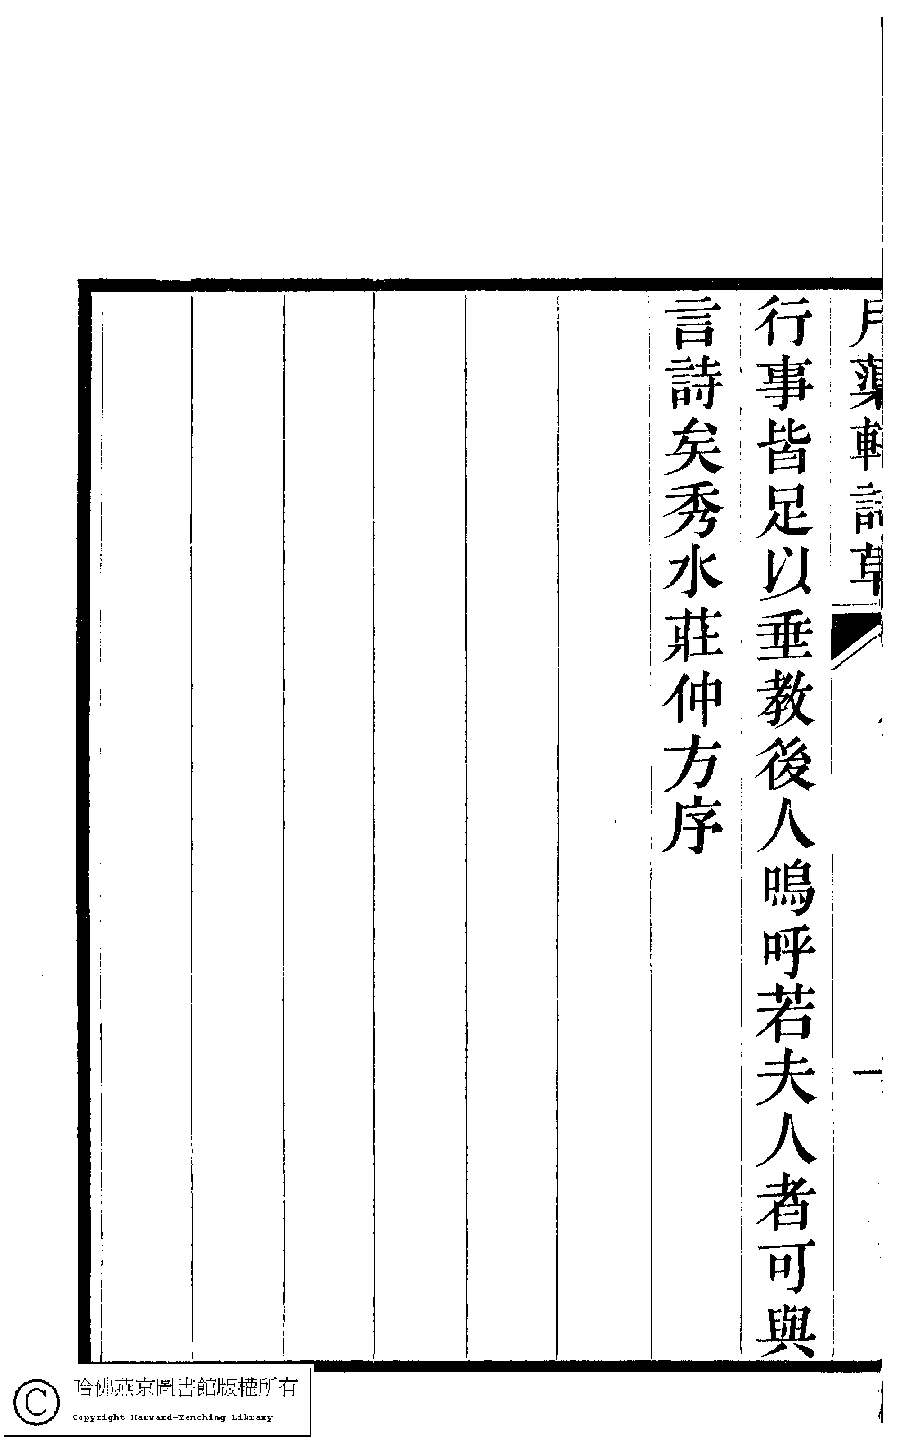 月蕖軒詩草
一
行事皆足以垂教後人嗚呼若夫人者可與
言詩矣秀水莊仲方序
哈佛燕京圖書館版權所有
Copyright Harvard-Yenching Library